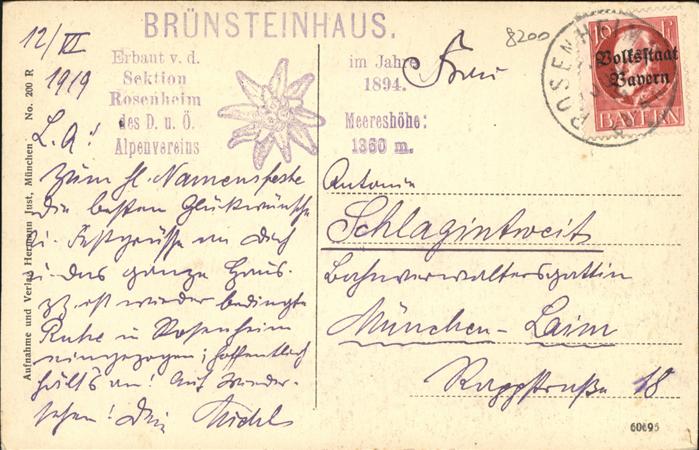 BRÜNSTEINHAUS.
Erbaut v. d.
Sektion
Rosenheim
des D. u. Ö.
Alpenvereins
im Jahre
1894.
Meereshöhe:
1360 m.
8200
ROSENHEIM
10 PF
Volksstaat
Bayern
BAYERN
12/VI
1919
L. A.!
Zum hl. Namensfeste
die besten Glückwünsche
u. Festgrüsse an Dich
u. das ganze Haus.
Zz. ist wieder bedingte
Ruhe in Rosenheim
eingezogen; hoffentlich
hält's an! Auf Wieder-
sehen! Dein
Frau
Antonie
Schlagintweit
Bahnverwaltersgattin
München-Laim
Rappstraße 18
Aufnahme und Verlag Hermann Just, München No. 200 R
60695